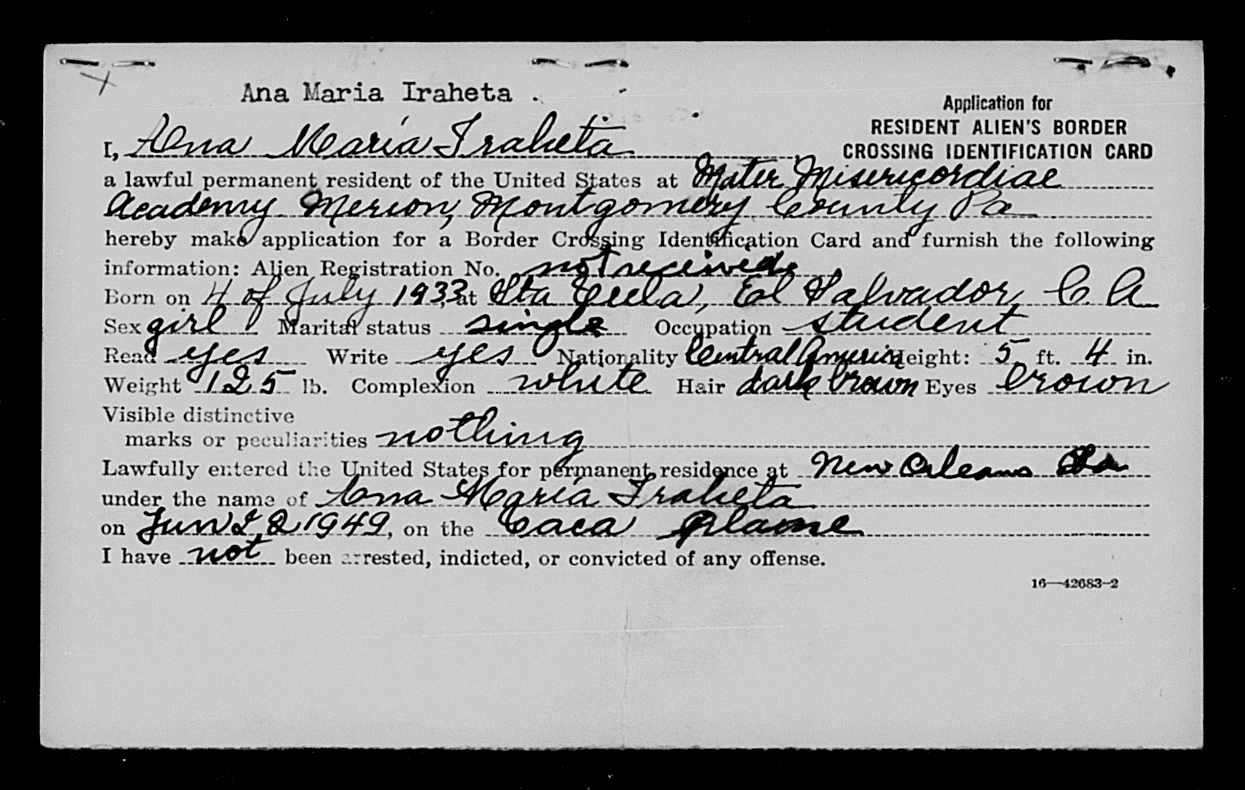 Ana Maria Iraheta
Application for
RESIDENT ALIEN'S BORDER
CROSSING IDENTIFICATION CARD
I, Ana Maria Iraheta
a lawful permanent resident of the United States at Mater Misericordiae
Academy Merion, Montgomery County Pa
hereby make application for a Border Crossing Identification Card and furnish the following
information: Alien Registration No. not received
Born on 4 of July 1933 at Sta Tecla, El Salvador, C A
Sex girl Marital status single Occupation student
Read yes Write yes Nationality Central America Height: 5 ft. 4 in.
Weight 125 lb. Complexion white Hair dark brown Eyes brown
Visible distinctive
marks or peculiarities nothing
Lawfully entered the United States for permanent residence at New Orleans La
under the name of Ana Maria Iraheta
on Jun 22 1949, on the Taca Plaine
I have not been arrested, indicted, or convicted of any offense.
16—42683-2